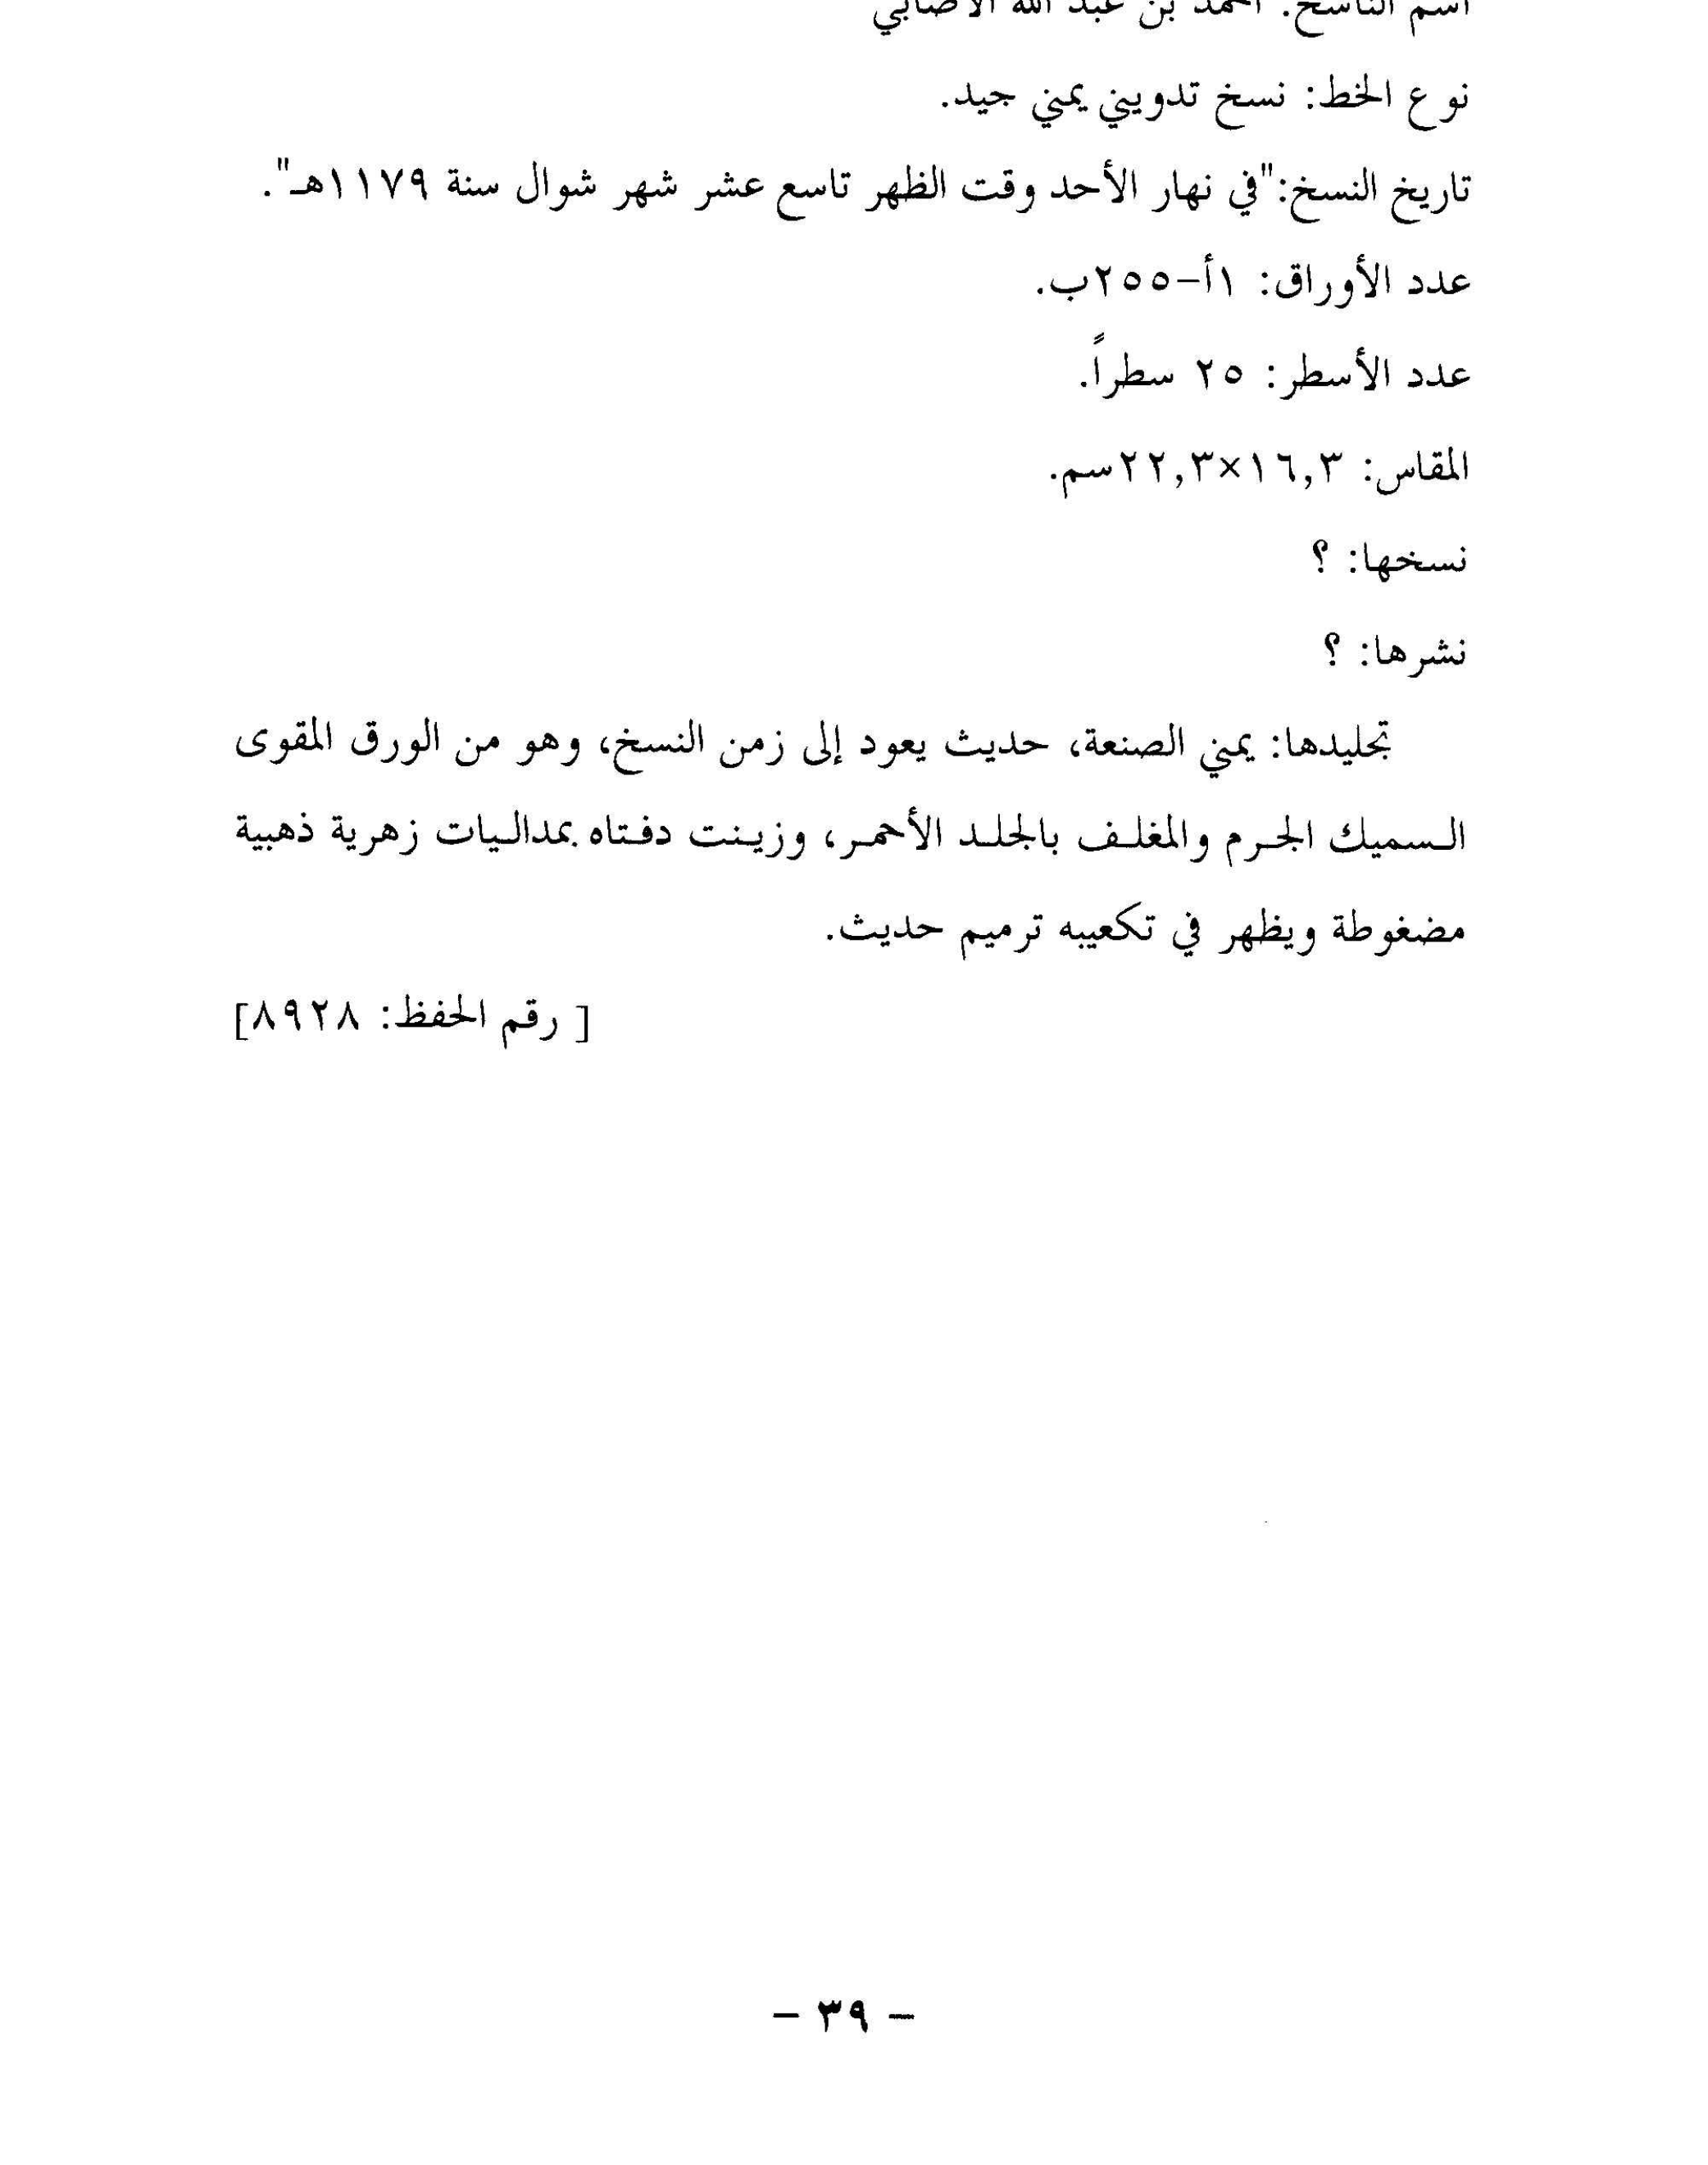 اسم الناسخ: أحمد بن عبد الله الأصابي
نوع الخط: نسخ تدويني يمني جيد.
تاريخ النسخ:"في نهار الأحد وقت الظهر تاسع عشر شهر شوال سنة ١١٧٩هـ".
عدد الأوراق: ١أ-٢٥٥ب.
عدد الأسطر: ٢٥ سطراً.
المقاس: ١٦,٣×٢٢,٣سم.
نسخها: ؟
نشرها: ؟
تجليدها: يمني الصنعة، حديث يعود إلى زمن النسخ، وهو من الورق المقوى
السميك الجرم والمغلف بالجلد الأحمر، وزينت دفتاه بمداليات زهرية ذهبية
مضغوطة ويظهر في تكعيبه ترميم حديث.
[ رقم الحفظ: ٨٩٢٨]
- ٣٩ -